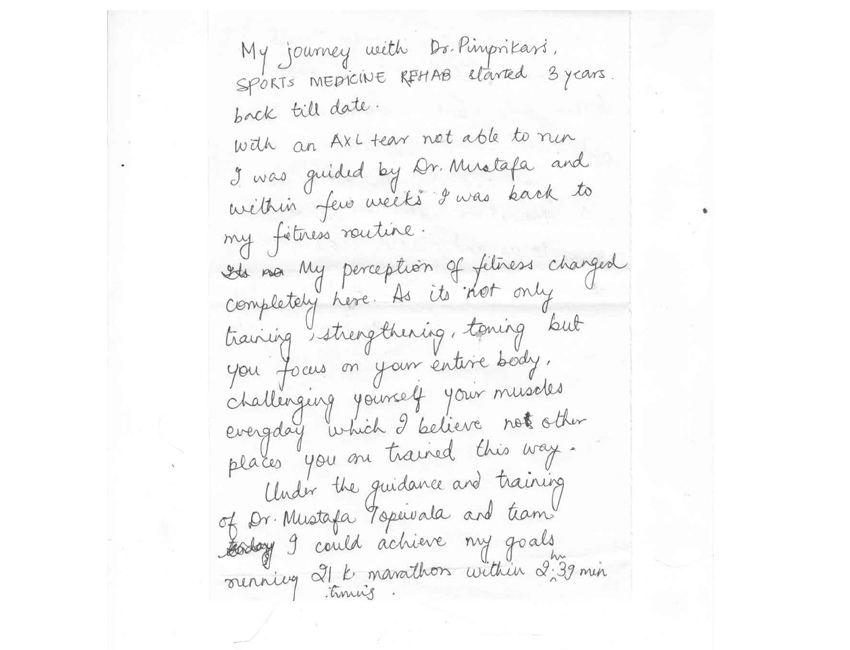 My journey with Dr. Pimprikar's,
SPORTS MEDICINE REHAB started 3 years.
back till date.
With an AXL tear not able to run
I was guided by Dr. Mustafa and
within few weeks I was back to
my fitness routine.
Its no My perception of fitness changed
completely here. As its not only
training, strengthening, toning but
you focus on your entire body,
challenging yourself your muscles
everyday which I believe not other
places you are trained this way.
Under the guidance and training
of Dr. Mustafa Topiwala and team
today I could achieve my goals
running 21 k marathon within 2:39 min
hr
timing.